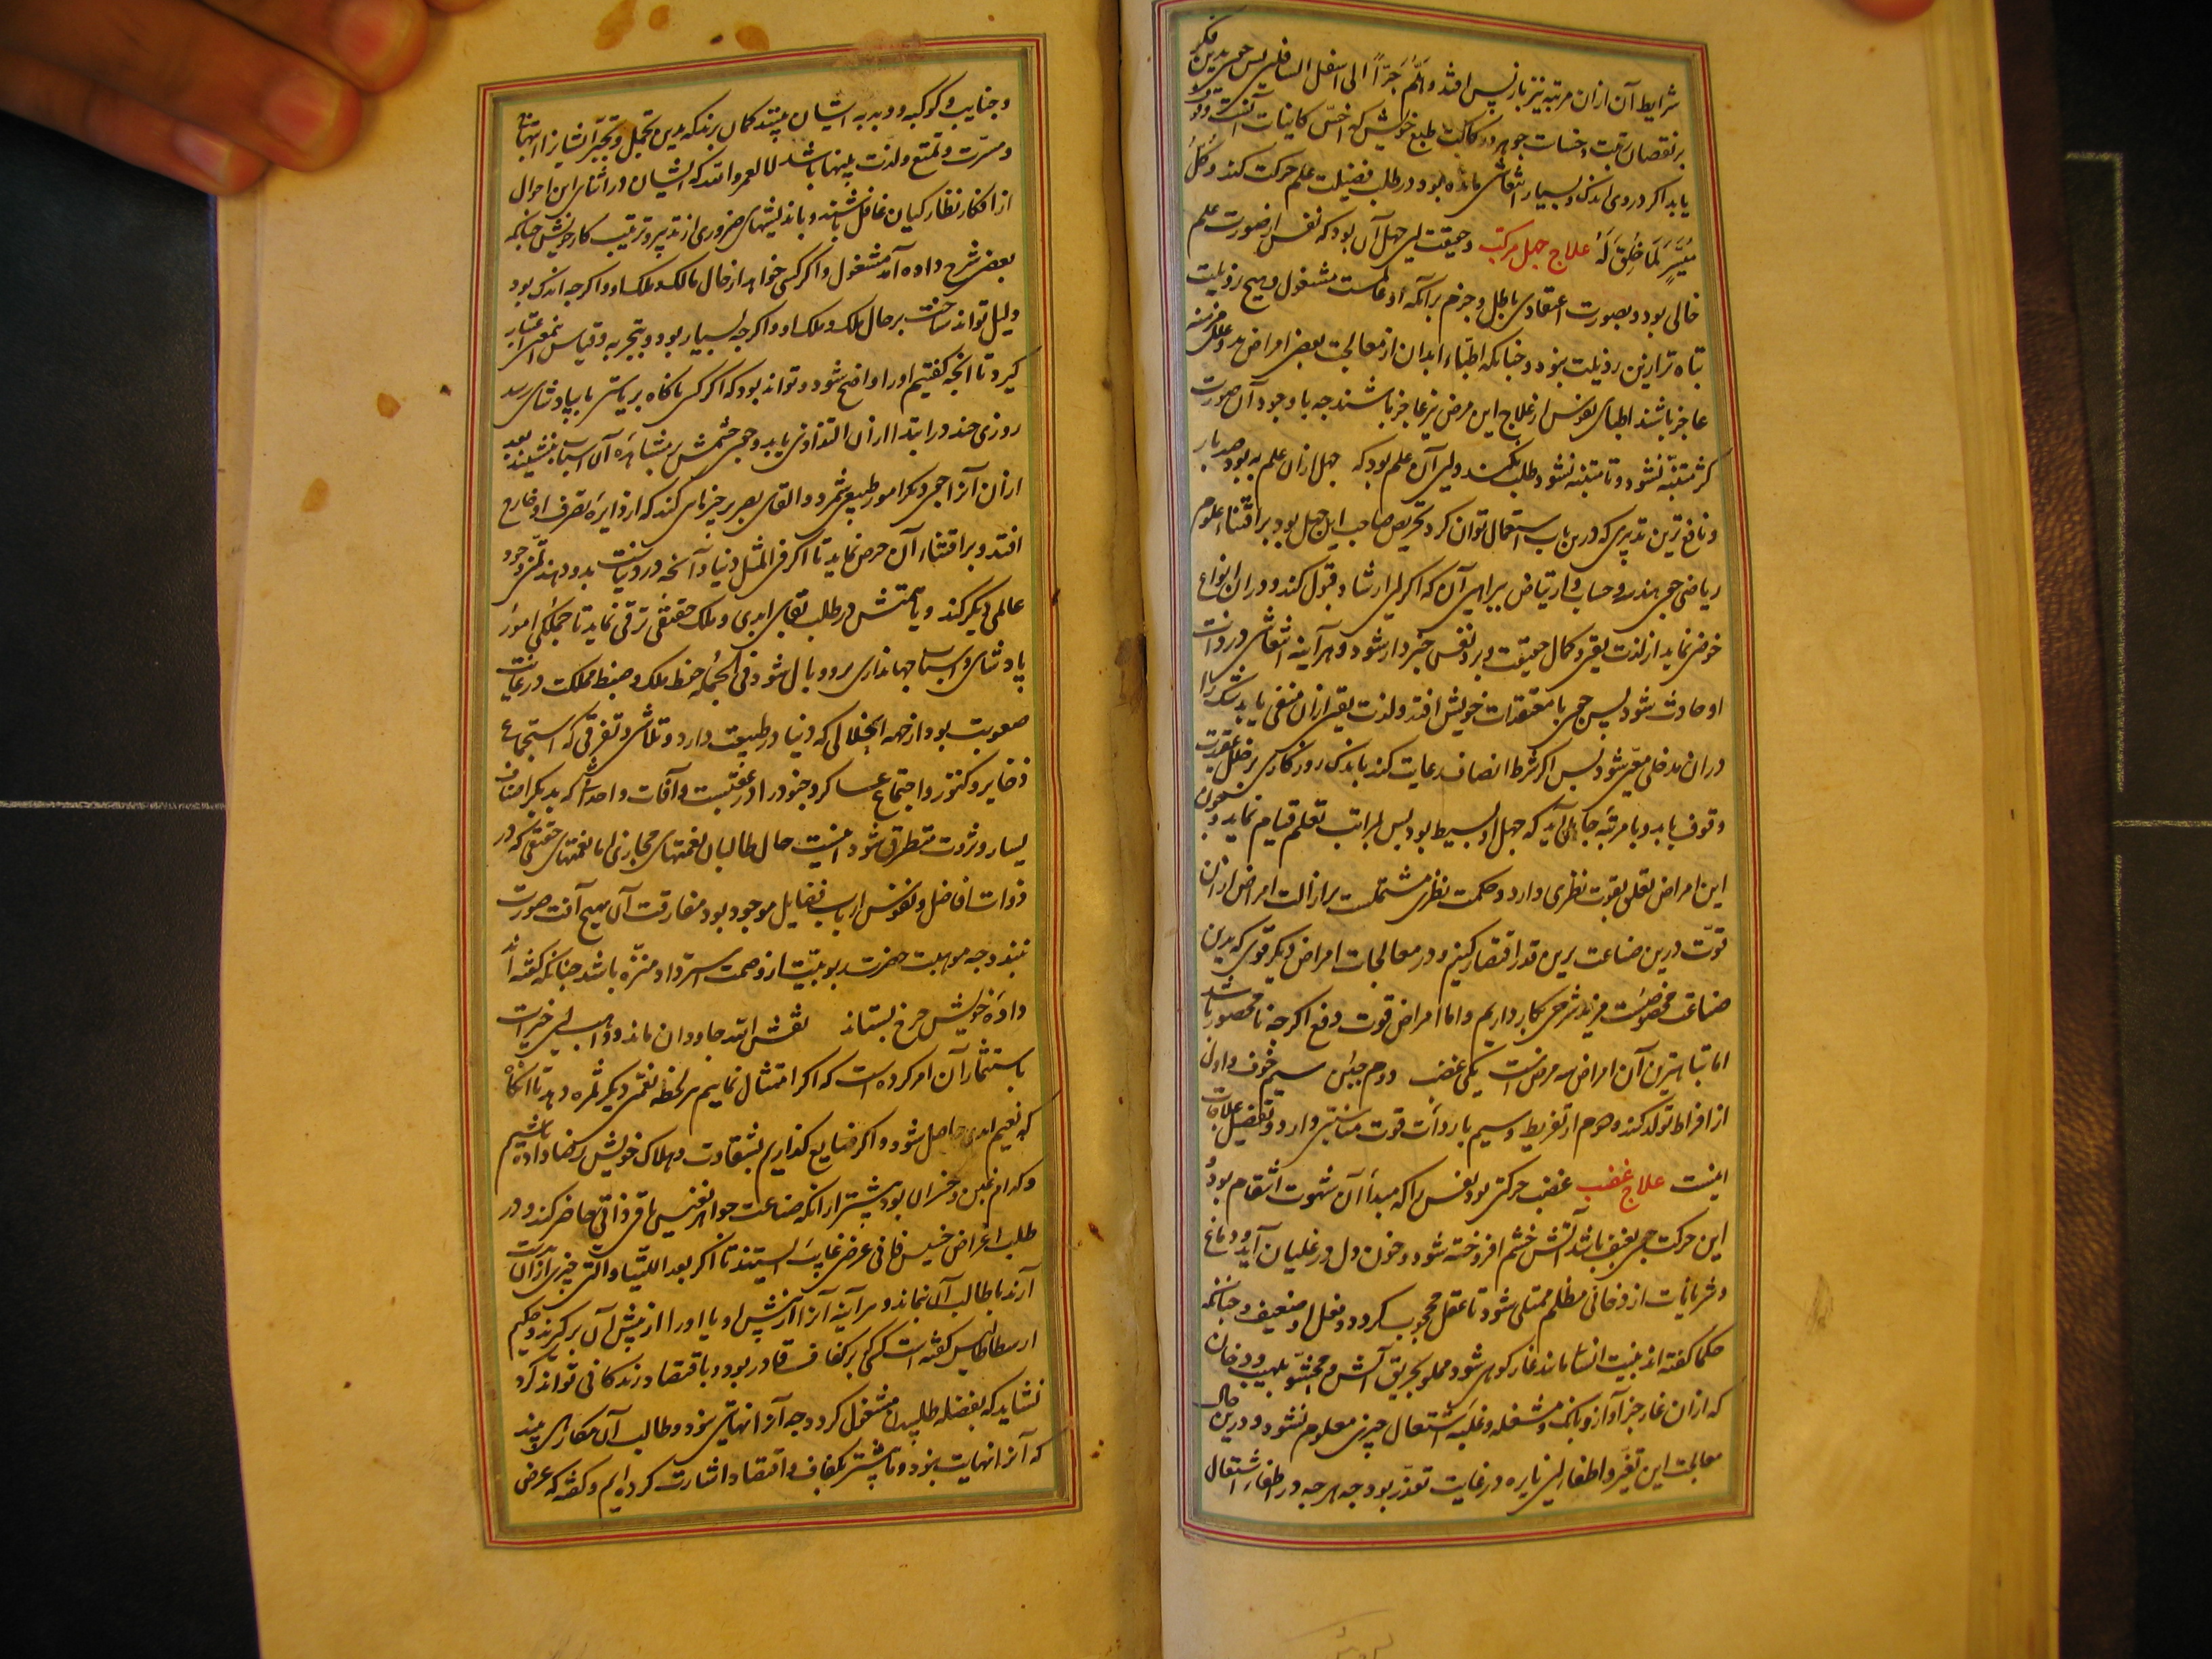 شرایط آن ازان مرتبه نیز بازپس افتد و هَلُمَّ جَرّاً الی اسفل السافلین پس چون بدین فکر
بر نقصان رتبت و خساست جوهر و رکاکت طبع خویش که اخسّ کاینات آنست وقوف
یابد اگر در وی اندک و بسیار انتعاشی مانده بود در طلب فضیلت علم حرکت کند و کُلٌّ
مُیَسَّرٍ لِمَا خُلِقَ لَهُ علاج جهل مرکب و حقیقت این جهل آن بود که نفس از صورت علم
خالی بود و بصورت اعتقادی باطل و جزم برانکه او عالمست مشغول و هیچ رذیلت
تباه تر ازین رذیلت نبود و چنانکه اطبّاء ابدان از معالجت بعضی امراض بد و علل مزمنه
عاجز باشند اطبای نفوس از علاج این مرض نیز عاجز باشند چه با وجود آن صورت
کژ متنبّه نشود و تا متنبه نشود طلب نکند و این آن علم بود که جهل ازان علم به بود صد بار
و نافع ترین تدبیری که درین باب استعمال توان کرد تحریص صاحب این جهل بود بر اقتناء علوم
ریاضی چون هندسه و حساب و ارتیاض ببراهین آن که اگر این ارشاد قبول کند و دران انواع
خوض نماید از لذت یقین و کمال حقیقت و برد نفس خبردار شود و هر آینه انتعاشی در ذات
او حادث شود پس چون با معتقدات خویش افتد و لذت یقین ازان منفی یابد شک را
دران مدخلی معین شود پس اگر شرط انصاف رعایت کند باندک روزگاری بر خلل عقیدت
وقوف یابد و با مرتبه جاهلی آید که جهل او بسیط بود پس بمراتب تعلم قیام نماید و چون
این امراض تعلق بقوت نظری دارد و حکمت نظری مشتملست بر ازالت امراض ازان
قوّت درین صناعت برین قدر اقتصار کنیم و در معالجات امراض دیگر قوی که بدین
صناعت مخصوصست مزید شرحی بکار داریم و اما امراض قوت دفع اگر چه نامحصور باشد
اما تباهترین آن امراض سه مرض است یکی غضب دوم جبن سیم خوف و اول
از افراط تولد کند و دوم از تفریط و سیم با رداءت قوت مناسبتی دارد و تفصیل علاجات
اینست علاج غضب غضب حرکتی بود نفس را که مبدأ آن شهوت انتقام بود و
این حرکت چون بعنف باشد آتش خشم افروخته شود و خون دل در غلیان آید و دماغ
و شریانات از دخانی مظلم ممتلی شود تا عقل محجوب گردد و فعل او ضعیف و چنانکه
حکما گفته اند بنیت انسانی مانند غار کوهی شود مملو بحریق آتش و محتشو بلهیب و دخان
که ازان غار جز آواز و بانک و مشغله و غلبه اشتعال چیزی معلوم نشود و درین حال
معالجت این تغیر و اطفاء این نایره در غایت تعذر بود چه هر چه در اطفاء اشتعال
و جنایب و کوکبه و دبدبه ایشان بینند گمان برند که بدین تجمل و تجبر ایشانرا ابتهاج
و مسرت و تمتع و لذت بینهایت باشد لا لعمر و الله که ایشان در اثنای این احوال
از افکار نظارگیان غافل باشند و باندیشهای ضروری از تدبیر و ترتیب کار خویش چنانکه
بعضی شرح داده آمد مشغول و اگر کسی خواهد از حال مالک و ملک او و اگر چه اندک بود
دلیل تواند ساخت بر حال ملک و ملک او و اگر چه بسیار بود و بتجربه و قیاس این معنی اعتبار
گیرد تا آنچه گفتیم او را واضح شود و تواند بود که اگر کسی ناگاه بریاستی یا بپادشاهی رسد
روزی چند در ابتدا ازان التذاذی یابد و چون چشمش بر مشاهدة آن اسباب نشیند بعد
ازان آنرا چون دیگر امور طبیعی شمرد و القای بصر بر چیزهائی کند که از دایرة تصرف او خارج
افتد و بر اقتناء آن حرص نماید تا اگر فی المثل دنیا و آنچه در دنیاست بدو دهند تمنّی وجود
عالمی دیگر کند و یا همتش در طلب بقای ابدی و ملک حقیقی ترقی نماید تا جملگی امور
پادشاهی و اسباب جهانداری برو وبال شود فی الجمله حفظ ملک و ضبط مملکت در غایت
صعوبت بود از جهة انحلالی که دنیا در طبیعت دارد و تلاشی و تفرقی که استجماع
ذخایر و کنوز و اجتماع عساکر و جنود را در عقبست و آفات و احداثی که بدیگر اصناف
یسار و ثروت متطرق شود اینست حال طالبان نعمتهای مجازی اما نعمتهای حقیقی که در
ذوات افاضل و نفوس ارباب فضایل موجود بود مفارقت آن بهیچ آفت صورت
نبندد چه موهبت حضرت ربوبیت از وصمت استرداد منزّه باشد چنانکه گفته اند
دادة خویش چرخ بستاند نقش الله جاودان ماند و واهب این خیرات
باستثمار آن امر کرده است که اگر امتثال نماییم هر لحظه نعمتی دیگر ثمره دهد تا آنگاه
که نعیم ابدی حاصل شود و اگر ضایع گذاریم بشقاوت و هلاک خویش رضا داده باشیم
و کدام غبن و خسران بود بیشتر ازانکه بضاعت جواهر نفیس باقی ذاتی حاضر کنند و در
طلب اعراض خسیس فانی عرضی غایب ایستند تا اگر بعد اللتیا و التی چیزی ازان بدست
آرند با طالب آن نماند و هر آینه آنرا از پیش او یا او را از پیش آن برگیرند و حکیم
ارسطاطالیس گفته است کسی که بر کفاف قادر بود و باقتصاد زندگانی تواند کرد
نشاید که بفضله طلبیدن مشغول گردد چه آنرا نهایتی نبود و طالب آن مکارهی بیند
که آنرا نهایت نبود و ما پیشتر بکفاف و اقتصاد اشارت کرده ایم و گفته که غرض